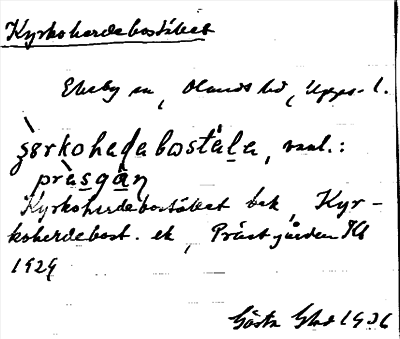 Kyrkoherdebostället
Ekeby sn, Olands hd, Upps. l.
ʒerkohedabostäla, vanl.:
pràsgån
Kyrkoherdebostället bek, Kyr-
koherdebost. ek, Prästgården
1929
Gösta 1936